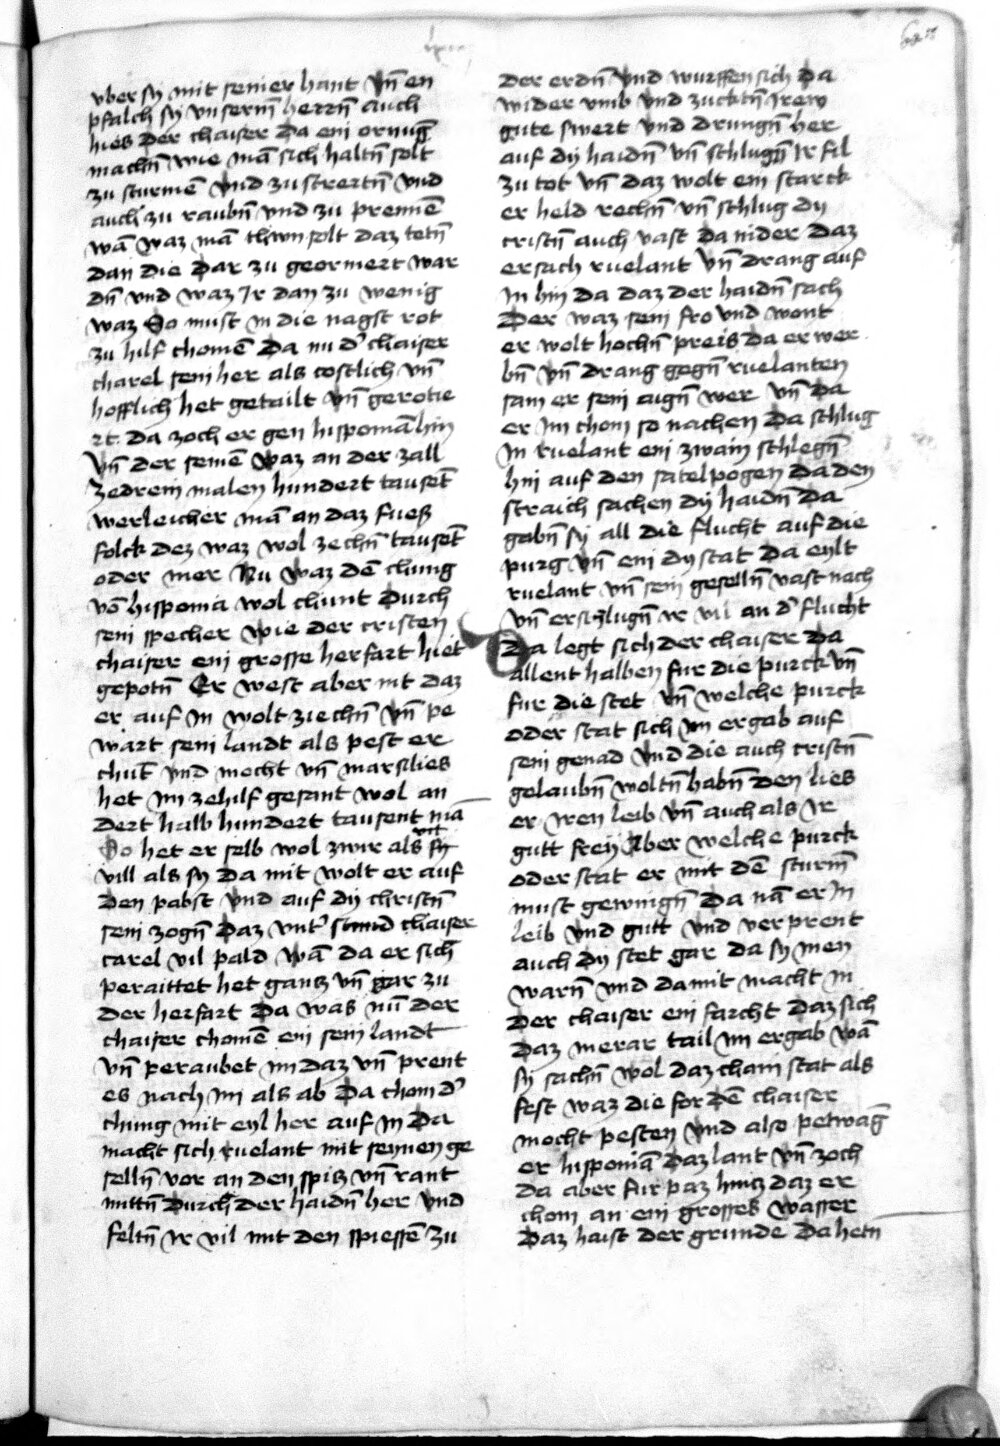 vber sy mit seiner hant vn̄ en
pfalch sy vnserm̄ herrn̄ auch
hies der chaiser da ein ornūg
machn̄ wie mā sich haltn̄ solt
zu sturmē vnd zu streitn̄ vnd
auch zu raubn̄ vnd zu prennē
wā waz mā thwn solt daz tetn̄
dan die dar zu geornert war
dn̄ vnd waz Ir dan zu wenig
waz So must in die nagst rot
zu hilf chomē Da nu d' chaiser
charel sein her als costlich vn̄
hofflich het getailt vn̄ gerotie
rt. da zoch er gen hispomā hin
vn̄ der seinē waz an der zall
zedrein malen hundert tausēt
werleicher mā an daz fueß
folck dez waz wol zechn̄ tausēt
oder mer Nu waz dē chung
vō hisponia wol chunt durch
sein specher wie der cristen
chaiser ein grosse herfart hiet
gepotn̄ Er west aber nit daz
er auf in wolt ziechn̄ vn̄ pe
wart sein landt als pest er
chūt vnd mecht vn̄ marsilies
het im zehilf gesant wol an
dert halb hundert tausent mā
So het er selb wol zwir als vil
vill als sy da mit wolt er auf
den pabst vnd auf dy christn̄
sein zogn̄ daz vnt' stund chaiser
carel vil pald wā da er sich
peraittet het gantz vn̄ gar zu
der herfart Da was nū der
chaiser chomē ein sein landt
vn̄ peraubet im daz vn̄ prent
es nach im als ab Da chom d'
chung mit eyl her auf in Da
macht sich ruelant mit seinen ge
selln̄ vor an den spitz vn̄ rant
mittn̄ durch der haidn̄ her vnd
feltn̄ ir vil mit den spiessē zu
der erdn̄ vnd wurffen sich da
wider vmb vnd zucktn̄ irew
gute swert vnd drungn̄ her
auf dy haidn̄ vn̄ schlugn̄ Ir fil
zu tot vn̄ daz wolt ein starck
er held rechn̄ vn̄ schlug dy
cristn̄ auch vast da nider daz
ersach ruelant vn̄ drang auf
In hin da daz der haidn̄ sach
Der waz sein fro vnd wont
er wolt hochn̄ preis da er wer
bn̄ vn̄ drang gegn̄ ruelanten
sam er sein aign̄ wer vn̄ da
er im chom so nachen Da schlug
in ruelant ein zwain schlegn̄
hin auf den satelpogen da den
straich sachen dy haidn̄ Da
gabn̄ sy all die flucht auf die
purg vn̄ ein dy stat Da eylt
ruelant vn̄ sein geselln̄ vast nach
vn̄ erschlugn̄ ir vil an d' flucht
Da legt sich der chaiser Da
allent halben fur die purck vn̄
fur die stet vn̄ welche purck
oder stat sich im ergab auf
sein genad vnd die auch cristn̄
gelaubn̄ woltn̄ habn̄ den lies
er iren leib vn̄ auch als Ir
gutt frey Aber welche purck
oder stat er mit dē sturm̄
must gewingn̄ Da nā er In
leib vnd gutt vnd verprent
auch dy stet gar da sy inen
warn̄ vnd da mit macht in
Der chaiser ein farcht daz sich
daz merar tail im ergab wā
sy sachn̄ wol daz chain stat als
fest waz die for dē chaiser
mocht pesten vnd also petwāg
er hisponiā daz lant vn̄ zoch
da aber fur paz hintz daz er
chom an ein grosses wasser
Daz haist der grunde Da hetn̄